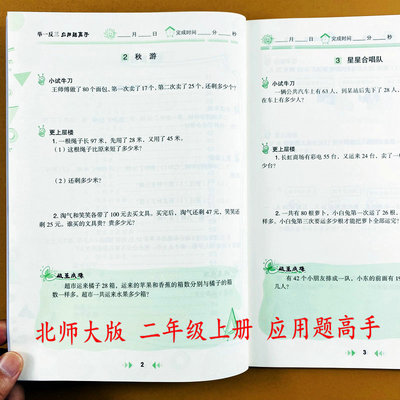 举一反三 应用题高手
___月___日 完成时间___分___秒
2 秋 游
小试牛刀
王师傅做了80个面包,第一次卖了17个,第二次卖了25个,还剩多少个?
更上层楼
1. 一根绳子长97米,先用了28米,又用了45米。
(1)这根绳子比原来短了多少米?
(2)还剩多少米?
2. 淘气和笑笑各带了100元去买文具。买完后,淘气还剩47元,笑笑还
剩25元。谁买的文具贵?贵多少元?
超市运来橘子28箱,运来的苹果和香蕉的箱数分别与橘子的箱
数一样多。超市一共运来水果多少箱?
2
___月___日 完成时间
3 星星合唱队
小试牛刀
一辆公共汽车上有63人,到某站后先下了28人
在车上有多少人?
更上层楼
1. 长虹商场有彩电55台,又运来24台,卖了一
2. 一共有80根萝卜,小白兔第一次运了26根,
样多。小白兔第三次要运多少根才能把萝卜全部运完?
有42个小朋友排成一队,小东的前面有19
几人?
3
北师大版 二年级上册 应用题高手